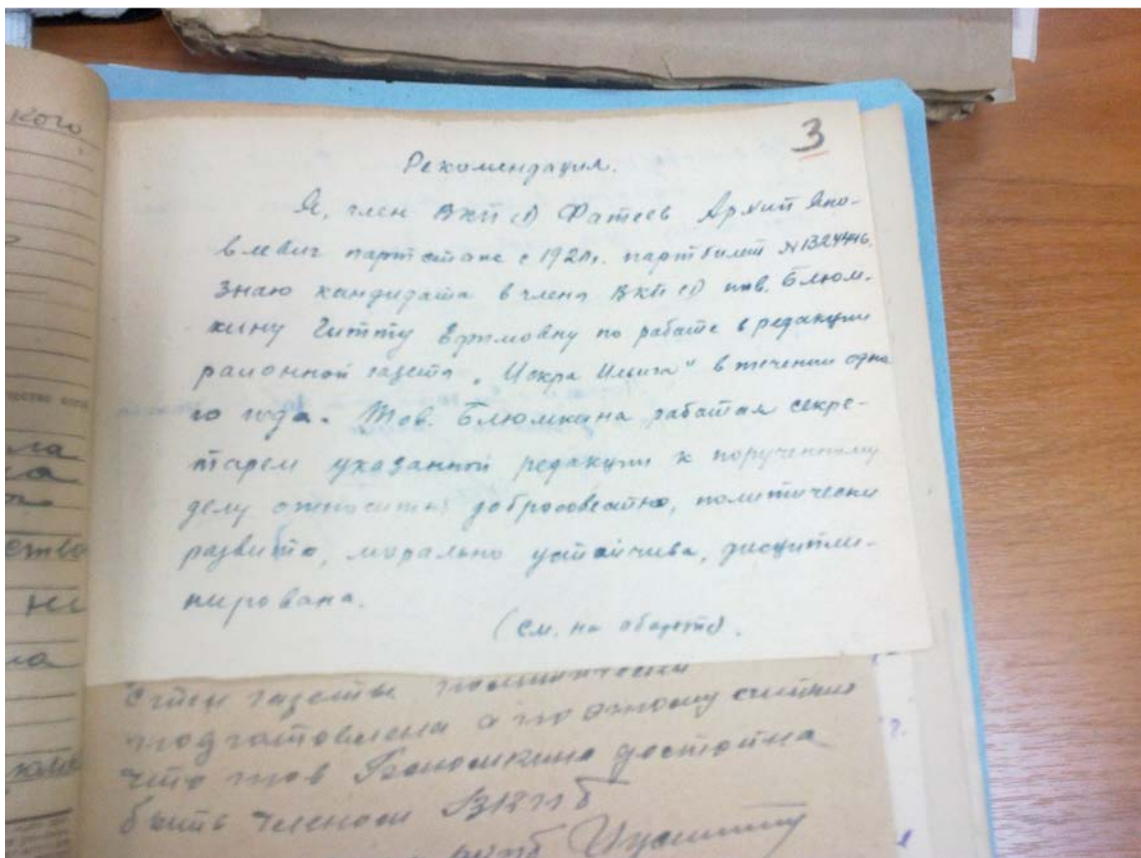 3
Рекомендация.
Я, член ВКП(б) Фатеев Архип
партстаж с 1920г. партбилет №1324416.
знаю кандидата в члена ВКП(б) тов. Блюм-
кину Гитту Ефимовну по работе в редакции
районной газета „Искра Ильича" в течении одно
го года. Тов. Блюмкина работая секре-
тарем указанной редакции к порученному
делу относится добросовестно, политически
развита, морально устойчива, дисципли-
нирована.
(см. на обороте).
газеты политически
подготовлена а по этому считаю
что тов Блюмкина достойна
быть членом ВКПб
кого
ла
на
ство
не
ла